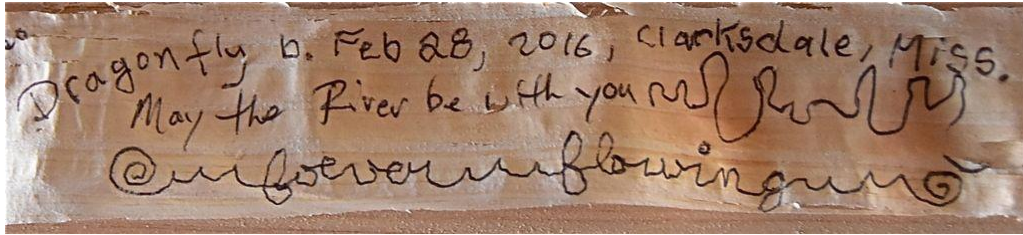 Dragonfly b. Feb 28, 2016, Clarksdale, Miss.
May the River be with you
forever flowing